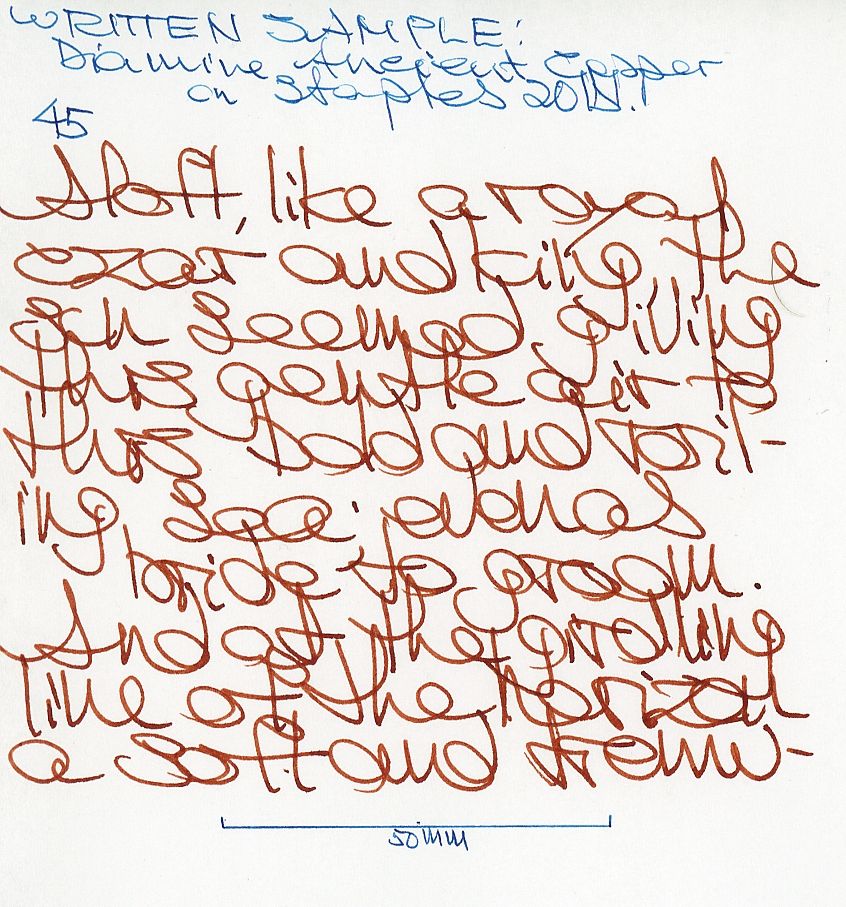 WRITTEN SAMPLE:
Diamine Ancient Copper
on Staples 20lb.!
45
Aloft, like a royal
czar and king, the
sun seemed giving
this gentle air to
this bold and roll-
ing sea; even as
bride to groom.
And at the girdling
line of the horizon
a soft and tremu-
50mm